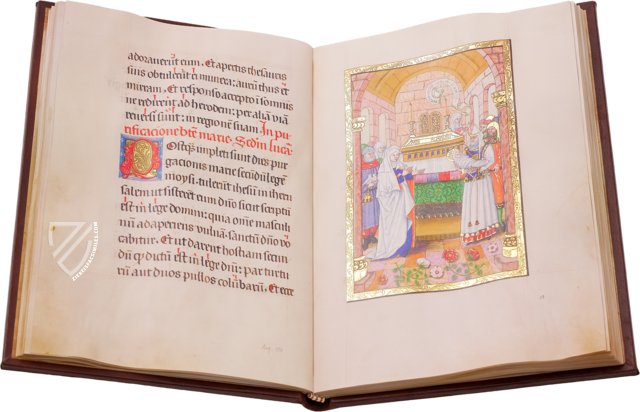 adoraverũt eum. Et apertis thesauris
suis obtulerũt ei munera: aurũ thus et
mirram. Et responso accepto i somnis
ne redirẽt ad herodem: per aliã viã
reversi sunt: in regionem suam. In pu-
rificatione bte marie. Scdm lucam
Postquã impleti sunt dies pur
gacionis marie secũdũ legẽ
moysi: tulerũt ihesum in iheru
salem ut sisterẽt eum dño sicut scriptũ
est in lege domini: quia omne mascu
linũ adaperiens vulvam: sanctũ dño vo
cabitur. Et ut darent hostiam secun
dũ qd dictũ est in lege dñi: par turtu
rũ aut duos pullos colũbarũ. Et ecce
ZIEREISFACSIMILES.COM